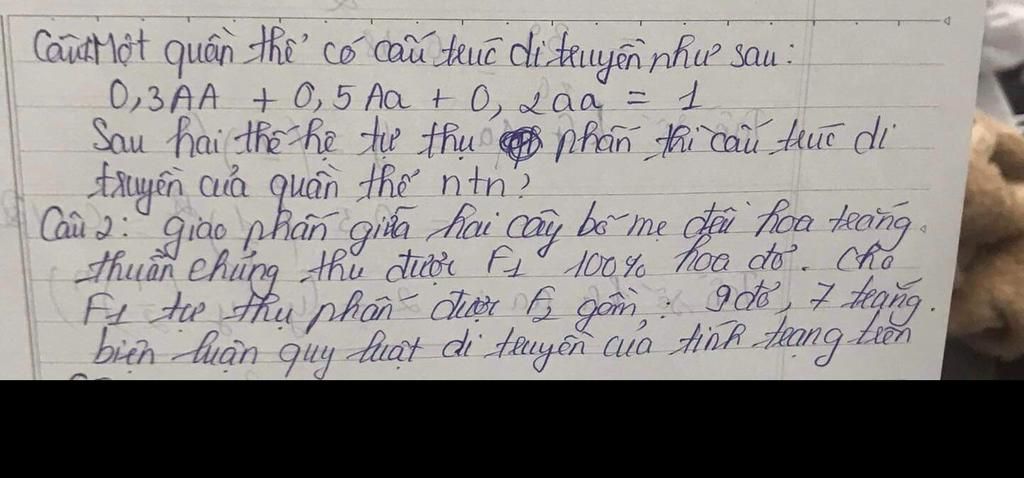 Câu1 Một quần thể có cấu trúc di truyền như sau:
0,3AA + 0,5Aa + 0,2aa = 1
Sau hai thế hệ tự thụ phấn thì cấu trúc di
truyền của quần thể ntn?
Câu 2: giao phấn giữa hai cây bố mẹ đều hoa trắng.
thuần chủng thu được F1 100% hoa đỏ. Cho
F1 tự thụ phấn được F2 gồm: 9 đỏ, 7 trắng.
biện luận quy luật di truyền của tính trạng trên